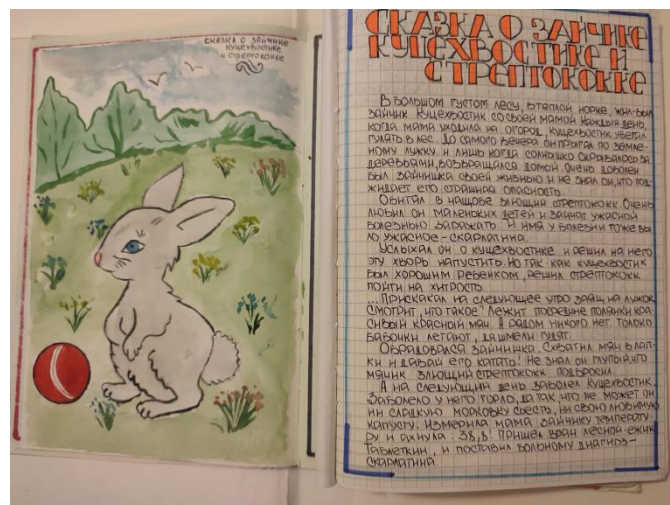 СКАЗКА О ЗАЙЧИКЕ
КУЦЕХВОСТИКЕ
И СТРЕПТОКОККЕ
СКАЗКА О ЗАЙЧИКЕ
КУЦЕХВОСТИКЕ И
СТРЕПТОКОККЕ
В большом густом лесу, в теплой норке, жил-был
зайчик Куцехвостик со своей мамой. Каждый день,
когда мама уходила на огород, Куцехвостик убегал
гулять в лес. До самого вечера он прыгал по зелё-
ному лужку. И лишь когда солнышко скрывалось за
деревьями, возвращался домой. Очень доволен
был зайчишка своей жизнью и не знал он, что под-
жидает его страшная опасность.
Обитал в чащобе злющий стрептококк. Очень
любил он маленьких детей и зайчат ужасной
болезнью заражать. И имя у болезни тоже бы-
ло ужасное - скарлатина.
Услыхал он о Куцехвостике и решил на него
эту хворь напустить. Но так как Куцехвостик
был хорошим ребенком, решил стрептококк
пойти на хитрость.
...Прискакал на следующее утро заяц на лужок.
Смотрит, что такое? Лежит посредине полянки кра-
сивый красный мяч. А рядом никого нет. Только
бабочки летают, да шмели гудят.
Обрадовался зайчишка. Схватил мяч в лап-
ки и давай его катать! Не знал он глупый, что
мячик злющий стрептококк подбросил.
А на следующий день заболел Куцехвостик.
Заболело у него горло, да так, что не может он
ни сладкую морковку съесть, ни свою любимую
капусту. Измерила мама зайчику температу-
ру и ахнула: 38,8! Пришел врач лесной - ёжик
Таблеткин, и поставил больному диагноз-
скарлатина.